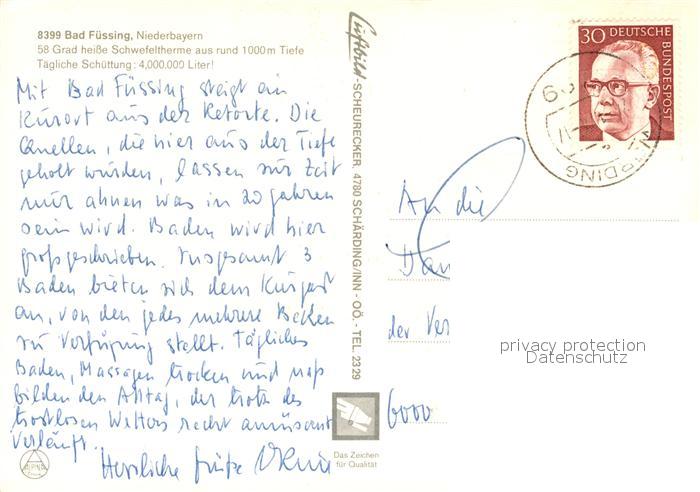 8399 Bad Füssing, Niederbayern
58 Grad heiße Schwefeltherme aus rund 1000 m Tiefe
Tägliche Schüttung: 4,000.000 Liter!
Mit Bad Füssing steigt ein
Kurort aus der Retorte. Die
Quellen, die hier aus der Tiefe
geholt wurden, lassen zur Zeit
nur ahnen was in 20 Jahren
sein wird. Baden wird hier
großgeschrieben. Insgesamt 3
Baden bieten sich dem Kurgast
an, von den jedes mehrere Becken
zur Verfügung stellt. Tägliches
Baden, Massagen trocken und naß
bilden den Alltag, der trotz des
trostlosen Wetters recht amüsant
verläuft.
Herzliche Grüße
Luftbild-SCHEURECKER, 4780 SCHÄRDING/INN - OÖ. - TEL. 2329
Das Zeichen
für Qualität
30 DEUTSCHE
BUNDESPOST
RDING
An die
Dan
der Ver
6000
privacy protection
Datenschutz